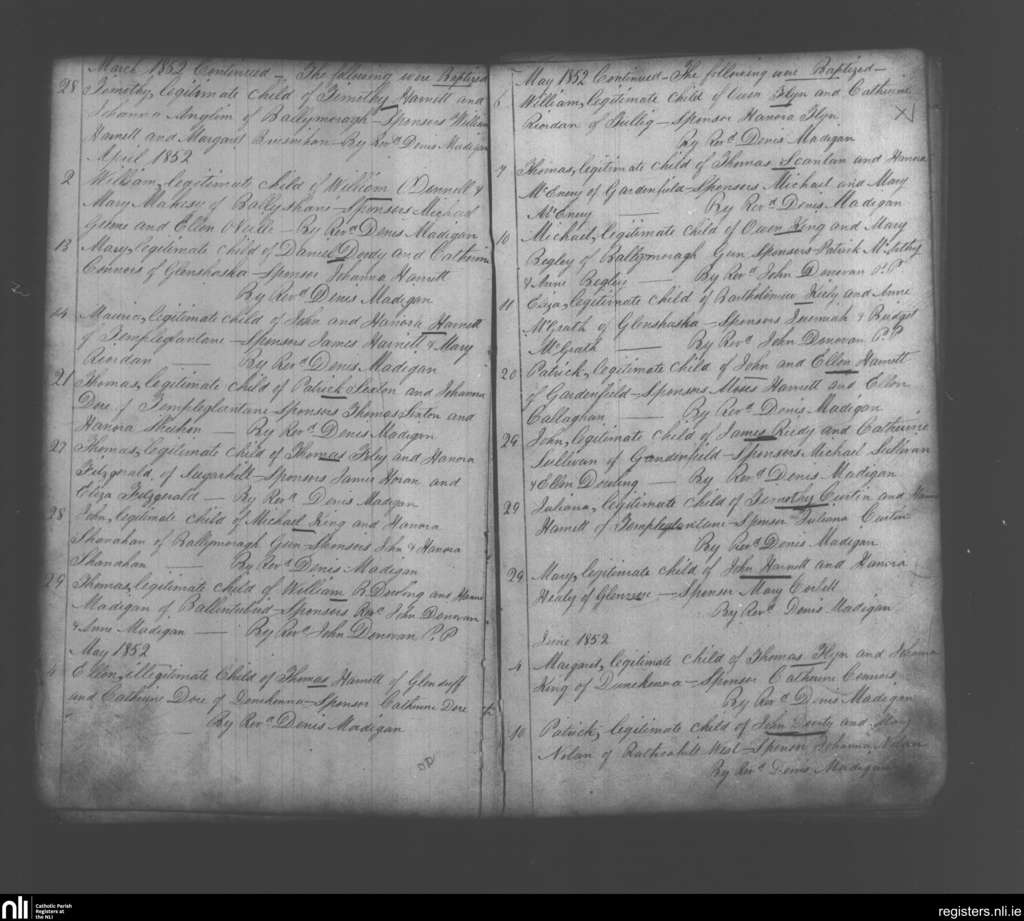 March 1852 Continued - The following were Baptized
28 Timothy, legitimate child of Timothy Harnett and
Johanna Anglim of Ballymoragh - Sponsors William
Harnett and Margaret - By Revd Denis Madigan
April 1852
2 William, legitimate child of William O'Donnell &
Mary of - Sponsors Michael
and Ellen - By Revd Denis Madigan
13 Mary, legitimate child of Daniel and Catherine
Connors of Glenshaska - Sponsor Johanna Harnett
By Revd Denis Madigan
Maurice, legitimate child of John and Hanora Harnett
of Templeglantane - Sponsors James Harnett & Mary
Riordan — By Revd Denis Madigan
21 Thomas, legitimate child of Patrick Sexton and Johanna
Dore of Templeglantane - Sponsors Thomas Sexton and
Hanora Sheehan — By Revd Denis Madigan
27 Thomas, legitimate child of Thomas and Hanora
Fitzgerald of Sugarhill - Sponsors James Horan and
Eliza Fitzgerald — By Revd Denis Madigan
28 John, legitimate child of Michael King and Hanora
Shanahan of Ballymoragh Gun - Sponsors John & Hanora
Shanahan — By Revd Denis Madigan
29 Thomas, legitimate child of William B. Dowling and
Madigan of - Sponsors Revd John Donovan
& Anne Madigan — By Revd John Donovan P.P
May 1852
4 Ellen, illegitimate Child of Thomas Harnett of Glenduff
and Catherine Dore of - Sponsor Catherine Dore
By Revd Denis Madigan
May 1852 Continued - The following were Baptized -
6 William, legitimate child of Flyn and Catherine
Riordan of - Sponsor Hanora Flyn
By Revd Denis Madigan
7 Thomas, legitimate child of Thomas Scanlan and Hanora
McEnery of Gardenfield - Sponsors Michael and Mary
McEnery — By Revd Denis Madigan
10 Michael, legitimate child of Owen King and Mary
Begley of Ballymoragh Gun Sponsors Patrick
& Anne Begley — By Revd John Donovan P.P
11 Eliza, legitimate child of Bartholomew Kiely and Anne
McGrath of Glenshaska - Sponsors Jeremiah & Bridget
McGrath — By Revd John Donovan P.P
20 Patrick, legitimate child of John and Ellen Harnett
of Gardenfield - Sponsors Moses Harnett and Ellen
Callaghan — By Revd Denis Madigan
26 John, legitimate child of James Reidy and Catherine
Sullivan of Gardenfield - Sponsors Michael Sullivan
& Ellen Dowling — By Revd Denis Madigan
29 Juliana, legitimate child of Timothy Curtin and
Harnett of Templeglantane - Sponsor Juliana Curtin
By Revd Denis Madigan
29 Mary, legitimate child of John Harnett and Hanora
Healy of - Sponsor Mary Corbett
By Revd Denis Madigan
June 1852
4 Margaret, legitimate child of Thomas Flyn and Johanna
King of - Sponsor Catherine Connors
By Revd Denis Madigan
10 Patrick, legitimate child of John and Mary
Nolan of Rathcahill West - Sponsor Johanna Nolan
By Revd Denis Madigan
nli
Catholic Parish
Registers at
the NLI
registers.nli.ie